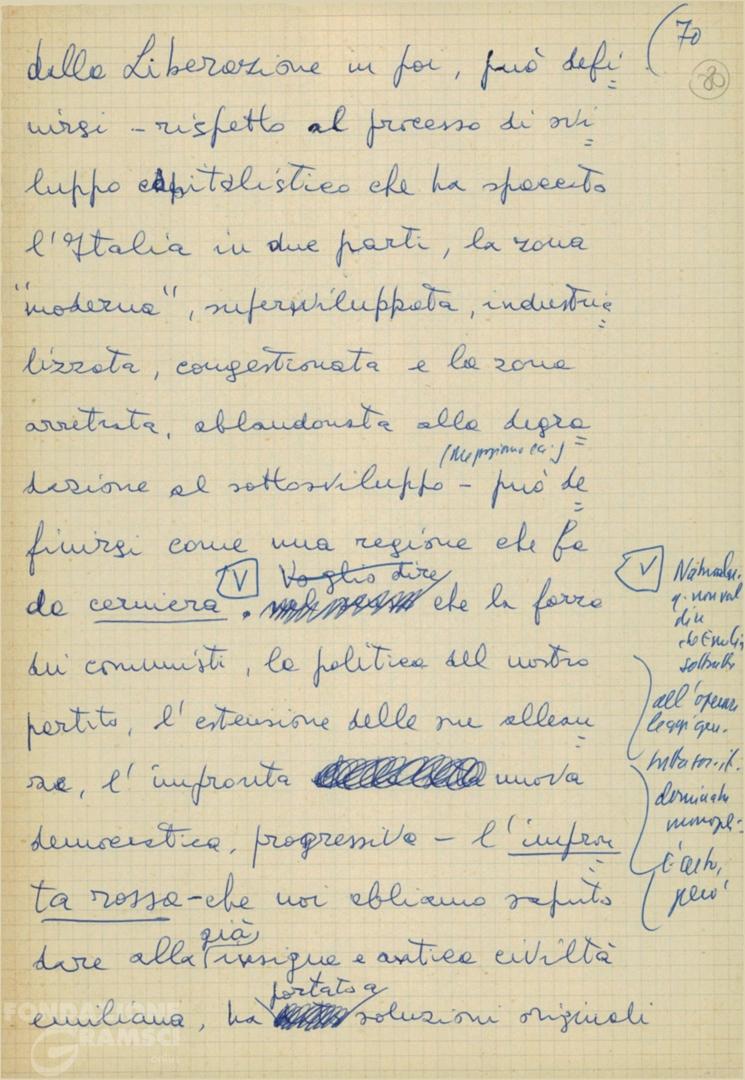 70
80
dalla Liberazione in poi, può defi
nirsi – rispetto al processo di svi
luppo capitalistico che ha spaccato
l'Italia in due parti, la zona
"moderna", supersviluppata, industria
lizzata, congestionata e la zona
arretrata, abbandonata alla degra
dazione al sottosviluppo – può de
finirsi come una regione che fa
da cerniera. V Voglio dire che la forza
dei comunisti, la politica del nostro
partito, l'estensione delle sue allean
ze, l'impronta nuova
democratica, progressiva – l'impron
ta rossa – che noi abbiamo saputo
dare alla già insigne e antica civiltà
emiliana, ha portato a soluzioni originali
V
q. non vul
dire
ch'Emilia
all'operare
leggi gen.
dominata
monopol.
È certo,
però
FONDAZIONE
GRAMSCI